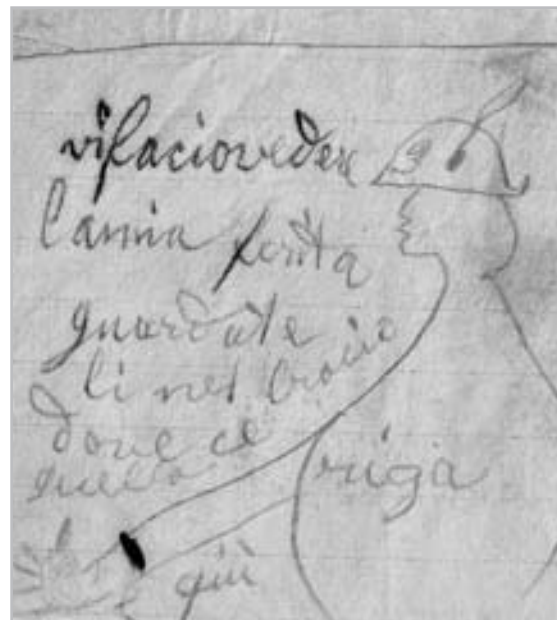 vifaciovedere
lamia ferita
guardate
li nel bracio
dove ce
quella riga
giù